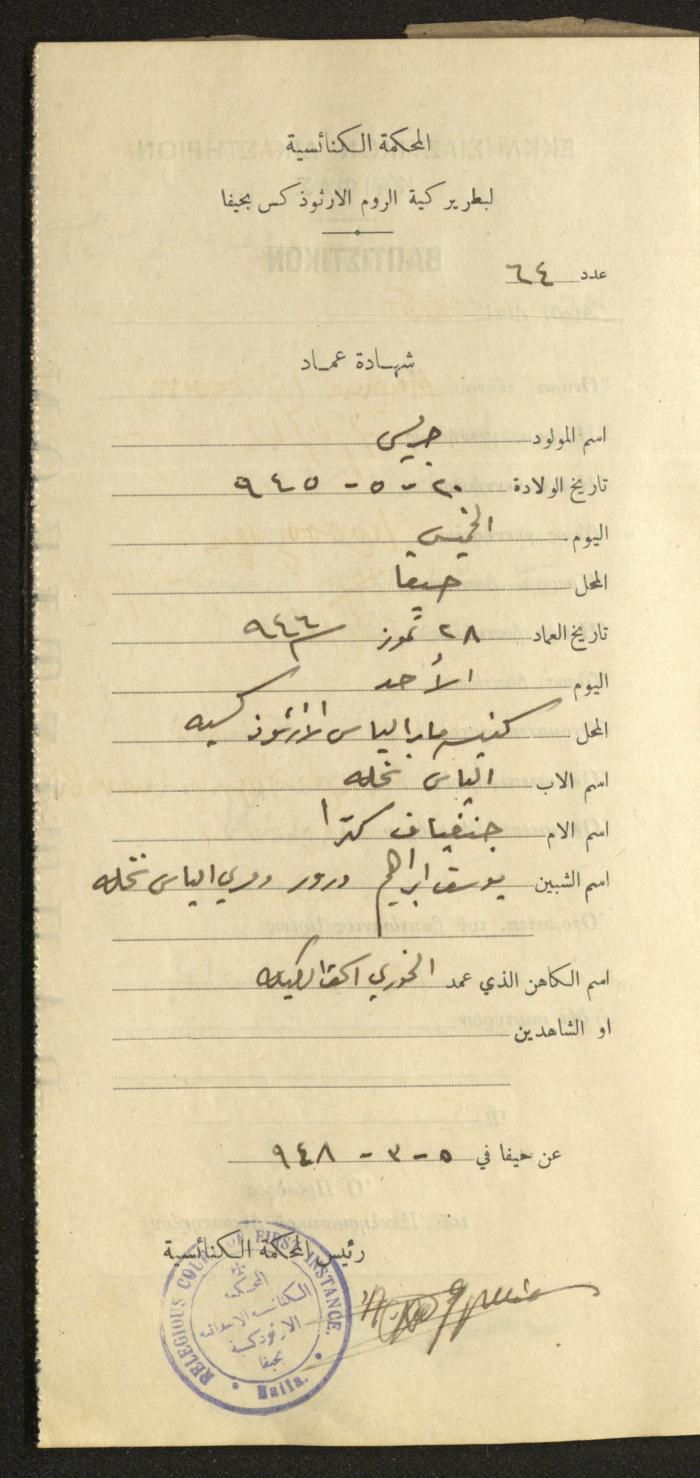 المحكمة الكنائسية
لبطريركية الروم الارثوذكس بحيفا
عدد ٦٤
شهادة عماد
اسم المولود جريس
تاريخ الولادة ٢٠ - ٥ - ٩٤٥
اليوم الخميس
المحل حيفا
تاريخ العماد ٢٨ تموز ٩٤٦
اليوم الأحد
المحل كنيسة مار الياس الارثوذكسيه
اسم الاب الياس نخله
اسم الام
اسم الشبين يوسف ابراهيم ومري الياس نخله
اسم الكاهن الذي عمد الخوري
او الشاهدين
عن حيفا في ٥ - ٣ - ٩٤٨
رئيس المحكمة الكنائسية
RELEGIOUS COURT OF FIRST INSTANCE.
المحكمة
الكنائسية الابتدائية
الارثوذكسية
بحيفا
Haifa.